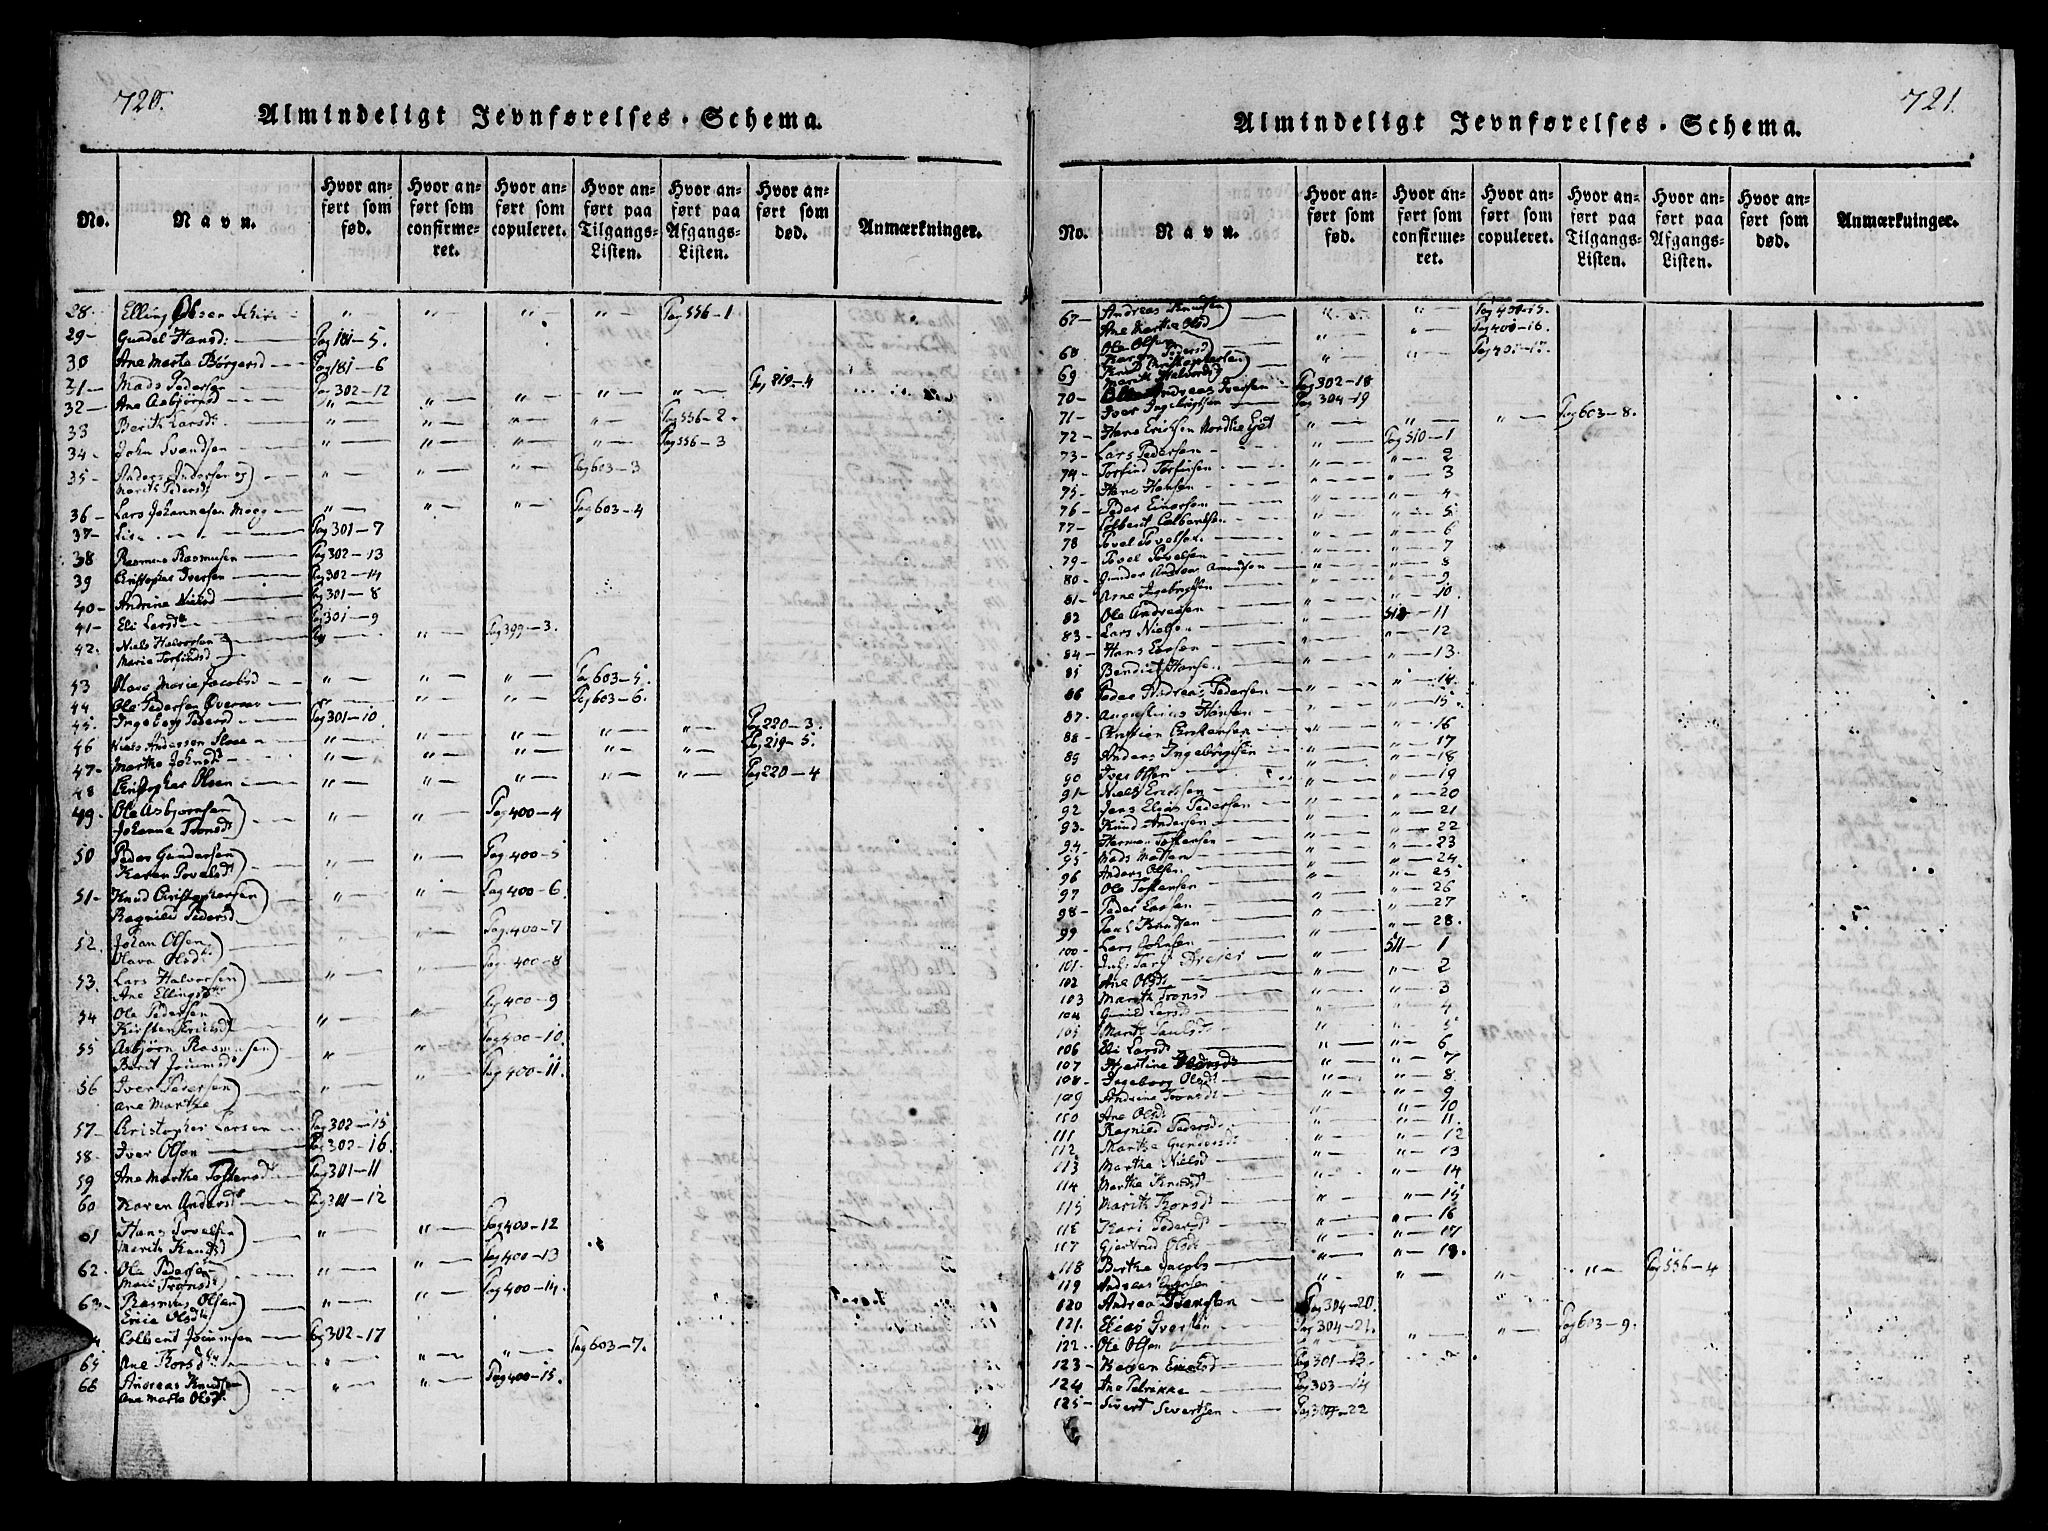 720.
Almindeligt Jevnførelses-Schema.
No. Navn. Hvor anført som fød. Hvor anført som confirmeret. Hvor anført som copuleret. Hvor anført paa Tilgangs-Listen. Hvor anført paa Afgangs-Listen. Hvor anført som død. Anmærkninger.
28 Elling Olsen " — " — " — " — Pag 556-1
29 — Gundel Hansd: Pag 181-5.
30 Ane Marte Börgersd Pag 181-6
31 — Mads Pedersen Pag 302-12 Pag 219-4
32 — Ane Asbjörnsd " — " — " — " — " —
33 Berit Larsd. " — " — " — " — Pag 556-2.
34 - John Svendsen " — " — " — " — Pag 556-3
35 - Anders Andersen og) " — " — " — Pag 603-3
Marith Pedersd
36 — Lars Johannesen Moeg " — " — " — Pag 603-4
37 — Pag 301-7
38 Rasmus Rasmusen Pag 302-13
39 Cristopher Iversen Pag 302-14
40 — Andrine Nielsd Pag 301-8
41 — Eli Larsd Pag 301-9
42. Niels Halvorsen) " — Pag 399-3.
Marie Torfindsd
43 Maria Jacobsd " — " — " — Pag 603-5.
44 Ole Pedersen " — " — " — Pag 603-6.
45. Ingeborg Pedersd Pag 301-10.
46 Niels Andersen " — " — " — " — " — Pag 220-3.
47 — Marthe Johnsd " — " — " — " — " — Pag 219-5.
48 Cristopher Olsen " — " — " — " — " — Pag 220-4
49 - Ole Asbjørnsen) " — " — Pag 400-4
Johanna Tronsd
50 Peder Gundersen) " — " — Pag 400-5
Karen Povelsd
51 - Knud Cristophersen) " — " — Pag 400-6.
Ragnild Pedersd
52. Johan Olsen) " — " — Pag. 400-7
Olava Olsd
53. Lars Halvorsen) " — " — Pag 400-8
Ane Ellingsd
54 Ole Pedersen) " — " — Pag 400-9
Kirsten Erichsd
55 Asbjörn Rasmusen) " — " — Pag 400-10.
Berit
56 Iver Pedersen) " — " — Pag 400-11.
Ane Marthe
57 - Cristopher Larsen Pag 302-15
58 - Iver Olsen Pag 302-16.
59 Ane Marthe Tostensd Pag 301-11
60 Karen Andersd Pag 301-12
61 Hans Povelsen) " — " — Pag 400-12
Marith Knudsd
62. Ole Pedersen) " — " — Pag 400-13
Mari Tronsd
63 - Rasmus Olsen) " — Pag 400-14.
Olsd
64 Colbent Pag 302-17
65 Ane Korsd " — " — " — Pag 603-7.
66 Andreas Knudsen) " — " — Pag 400-15.
Ane Marte Olsd
721
Almindeligt Jevnførelses-Schema.
No. Navn. Hvor anført som fød. Hvor anført som confirmeret. Hvor anført som copuleret. Hvor anført paa Tilgangs-Listen. Hvor anført paa Afgangs-Listen. Hvor anført som død. Anmærkninger.
67 — Andreas Knudsen) " — " — Pag 400-15.
Ane Marthe Olsd
68 Ole Olsen) " — " — Pag 400-16.
Karen Pedersd
69 Knud Cristophersen) " — " — Pag 400-17.
Marith Halvorsd
70 — Andreas Iversen Pag 302-18
71 — Iver Ingebrigtsen Pag 304-19
72 — Hans Erichsen " — " — " — Pag 603-8.
73 — Lars Pedersen " — Pag 510-1
74 — Torfind Torfinsen " — " — 2
75 — Hans Hansen " — " — 3
76 — Peder Einersen " — " — 4
77 — Colbent Colbentsen " — " — 5
78 Povel Povelsen " — " — 6
79 — Povel Povelsen " — " — 7
80 — Gunder Andreas Amundsen " — " — 8
81 — Arne Ingebrigtsen " — " — 9
82 Ole Andreasen " — " — 10.
83 — Lars Nielsen " — 510 — 11
84 — Hans Larsen " — " — 12
85 Bendict Hansen " — " — 13.
86 Peder Andreas Pedersen " — " — 14.
87. Augustinus Hansen " — " — 15.
88 — Christian Cristensen " — " — 16
89 Anders Ingebrigtsen " — " — 17
90 Iver Olsen " — " — 18
91 — Niels Ericksen " — " — 19
92 Jens Elias Pedersen " — " — 20
93. Knud Andersen " — " — 21
94. Herman Tostensen " — " — 22
95 Mads Madsen " — " — 23
96 Anders Olsen " — " — 24.
97 Ole Tostensen " — " — 25
98 — Peder Larsen " — " — 26
99 Paul Knudsen " — " — 27
100 — Lars Johnsen " — " — 28.
101. Dreier " — 511 — 1
102 Ane Olsd " — " — 2
103 Marith Tronsd " — " — 3
104 Gunild Larsd " — " — 4
105 Marit Paulsd " — " — 5
106 Eli Larsd " — " — 6
107 " — " — 7
108 — Ingeborg Olsd " — " — 8.
109 Andrina Tronsd " — " — 9
110 Ane Olsd " — " — 10
111 Ragnild Pedersd " — " — 11.
112 Marthe Gundersd " — " — 12
113 Marthe Nielsd " — " — 13
114 Marthe Knudsd " — " — 14
115 Marith Korsd " — " — 15
116 Kari Pedersd " — " — 16
117 Gjertrud Olsd " — " — 17
118 Birthe Jacobs " — " — 18.
119 Andreas " — " — " — " — Pag 556-4
120 Andrea Pag 304-20.
121. Iversen Pag 304-21.
122. Ole Olsen " — " — " — Pag 603-9.
123 — Karen Pag 301-13
124 Ane Petrikke Pag 303-14
125 — Sivert Sivertsen Pag 304-22